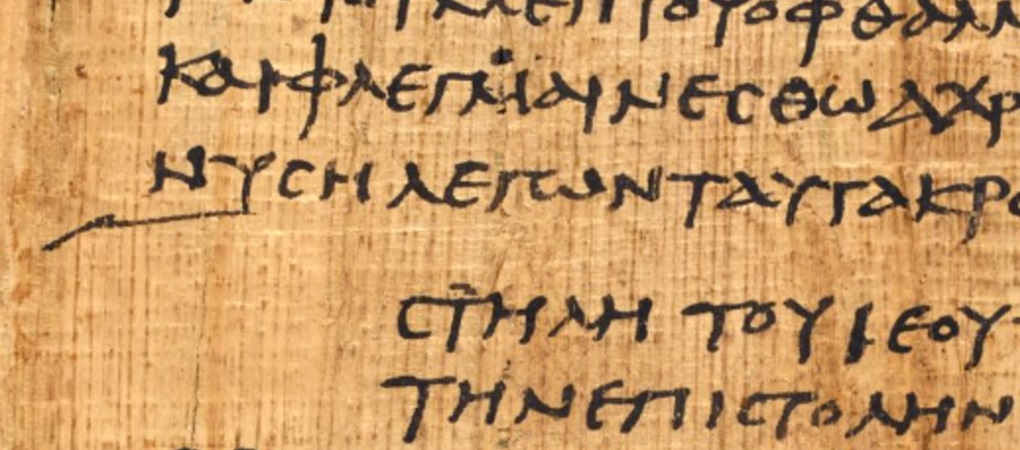 ΚΛΕΠΤΟΥΟΦΘΑΛΜ
ΚΑΙΦΛΕΓΜΑΙΝΕϹΘΩΑΧΡ
ΝΥϹΗΛΕΓΩΝΤΑΥΤΑΚΡΟ
ϹΤΗΛΗ ΤΟΥΙΕΟΥ
ΤΗΝΕΠΙϹΤΟΛΗΝ